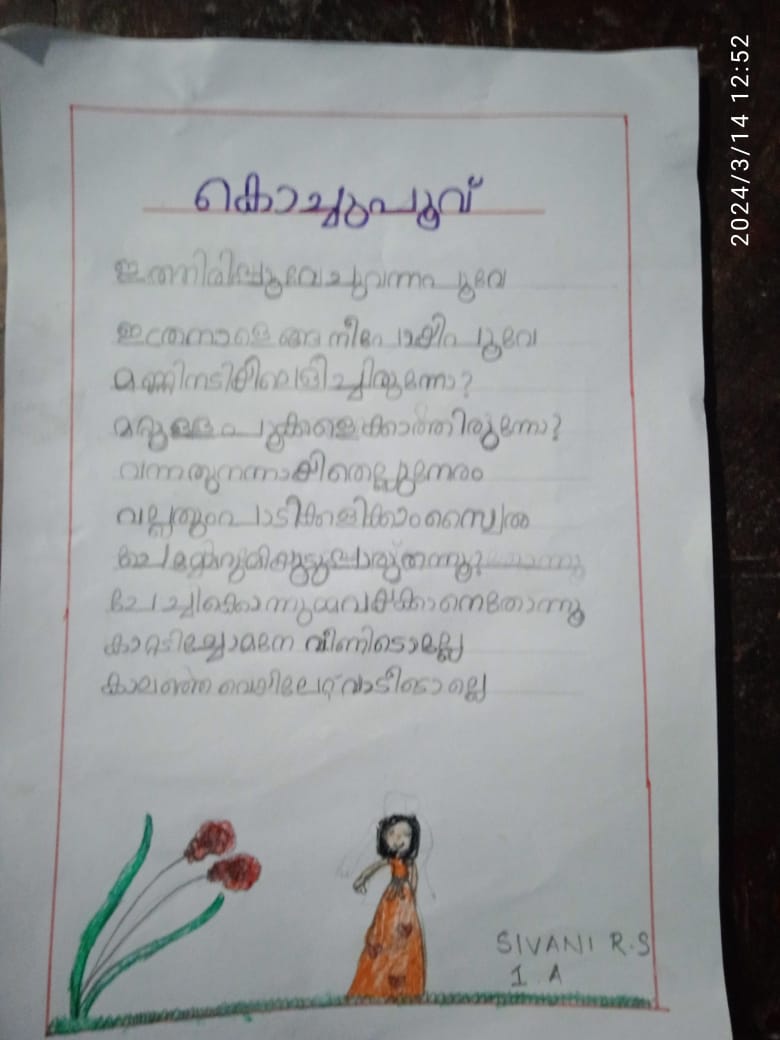 കൊച്ചുപൂവ്
ഇത്തിരിപ്പൂവേ ചുവന്ന പൂവേ
ഇത്രനാളെങ്ങു നീ പോയി പൂവേ
മണ്ണിനടിയിലൊളിച്ചിരുന്നോ?
മറ്റുള്ള പൂകളെ കാത്തിരുന്നോ?
വന്നതു നന്നായിതെല്ലുനേരം
വല്ലതും പാടിക്കളിക്കാം
കൂട്ടു
തോന്നൂ
കാറ്റടിച്ചോമനേ വീണിടൊല്ലേ
വെയിലേറ്റ് വാടീടൊല്ലെ
SIVANI R.S
1 A
2024/3/14 12:52